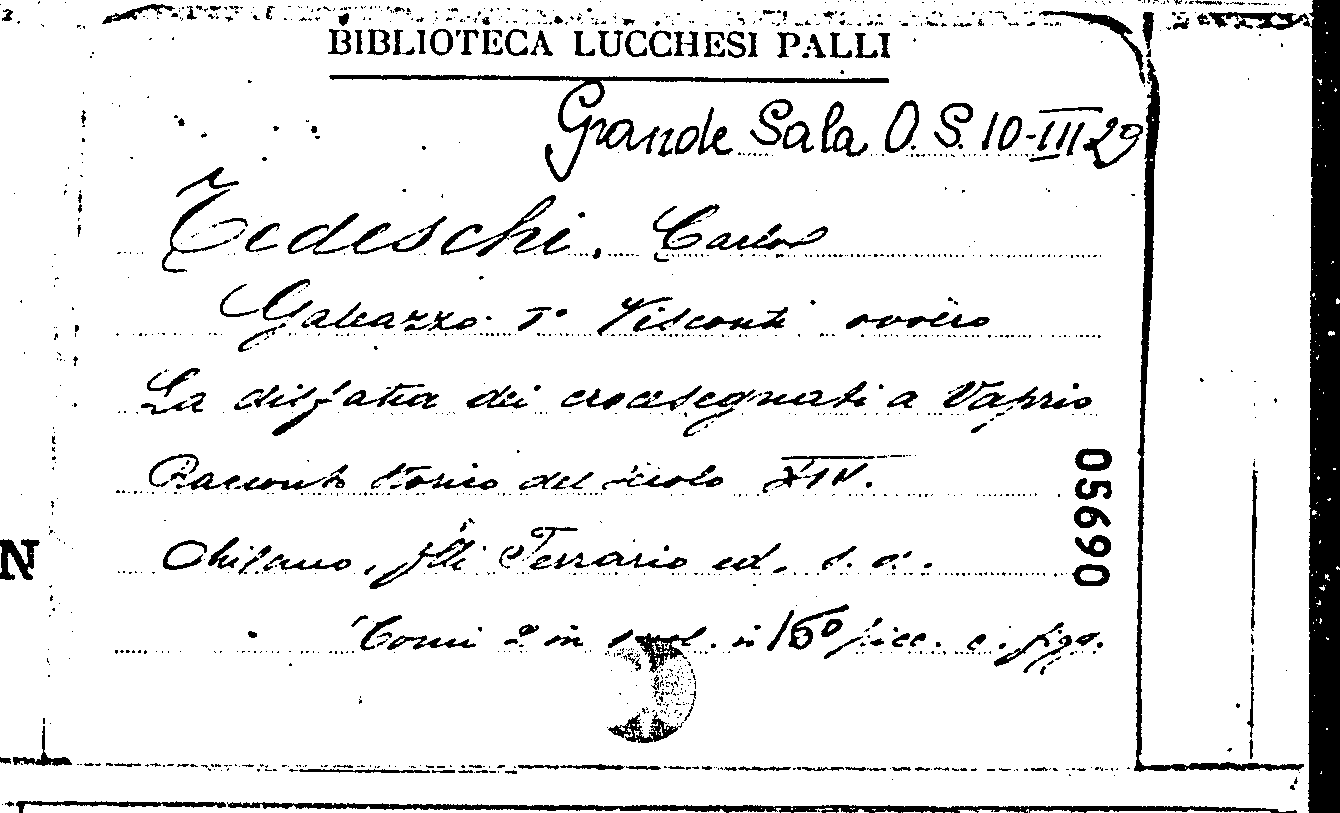 BIBLIOTECA LUCCHESI PALLI
Grande Sala O. S. 10-III 29
Tedeschi, Carlo
Galeazzo I° Visconti ovvero
La disfatta dei crocesegnati a Vaprio
Racconto storico del secolo XIV.
05690
N
Milano, flli Ferrario ed. s. a.
Tomi 2 in 1 vol. in 16° picc. c. figg.